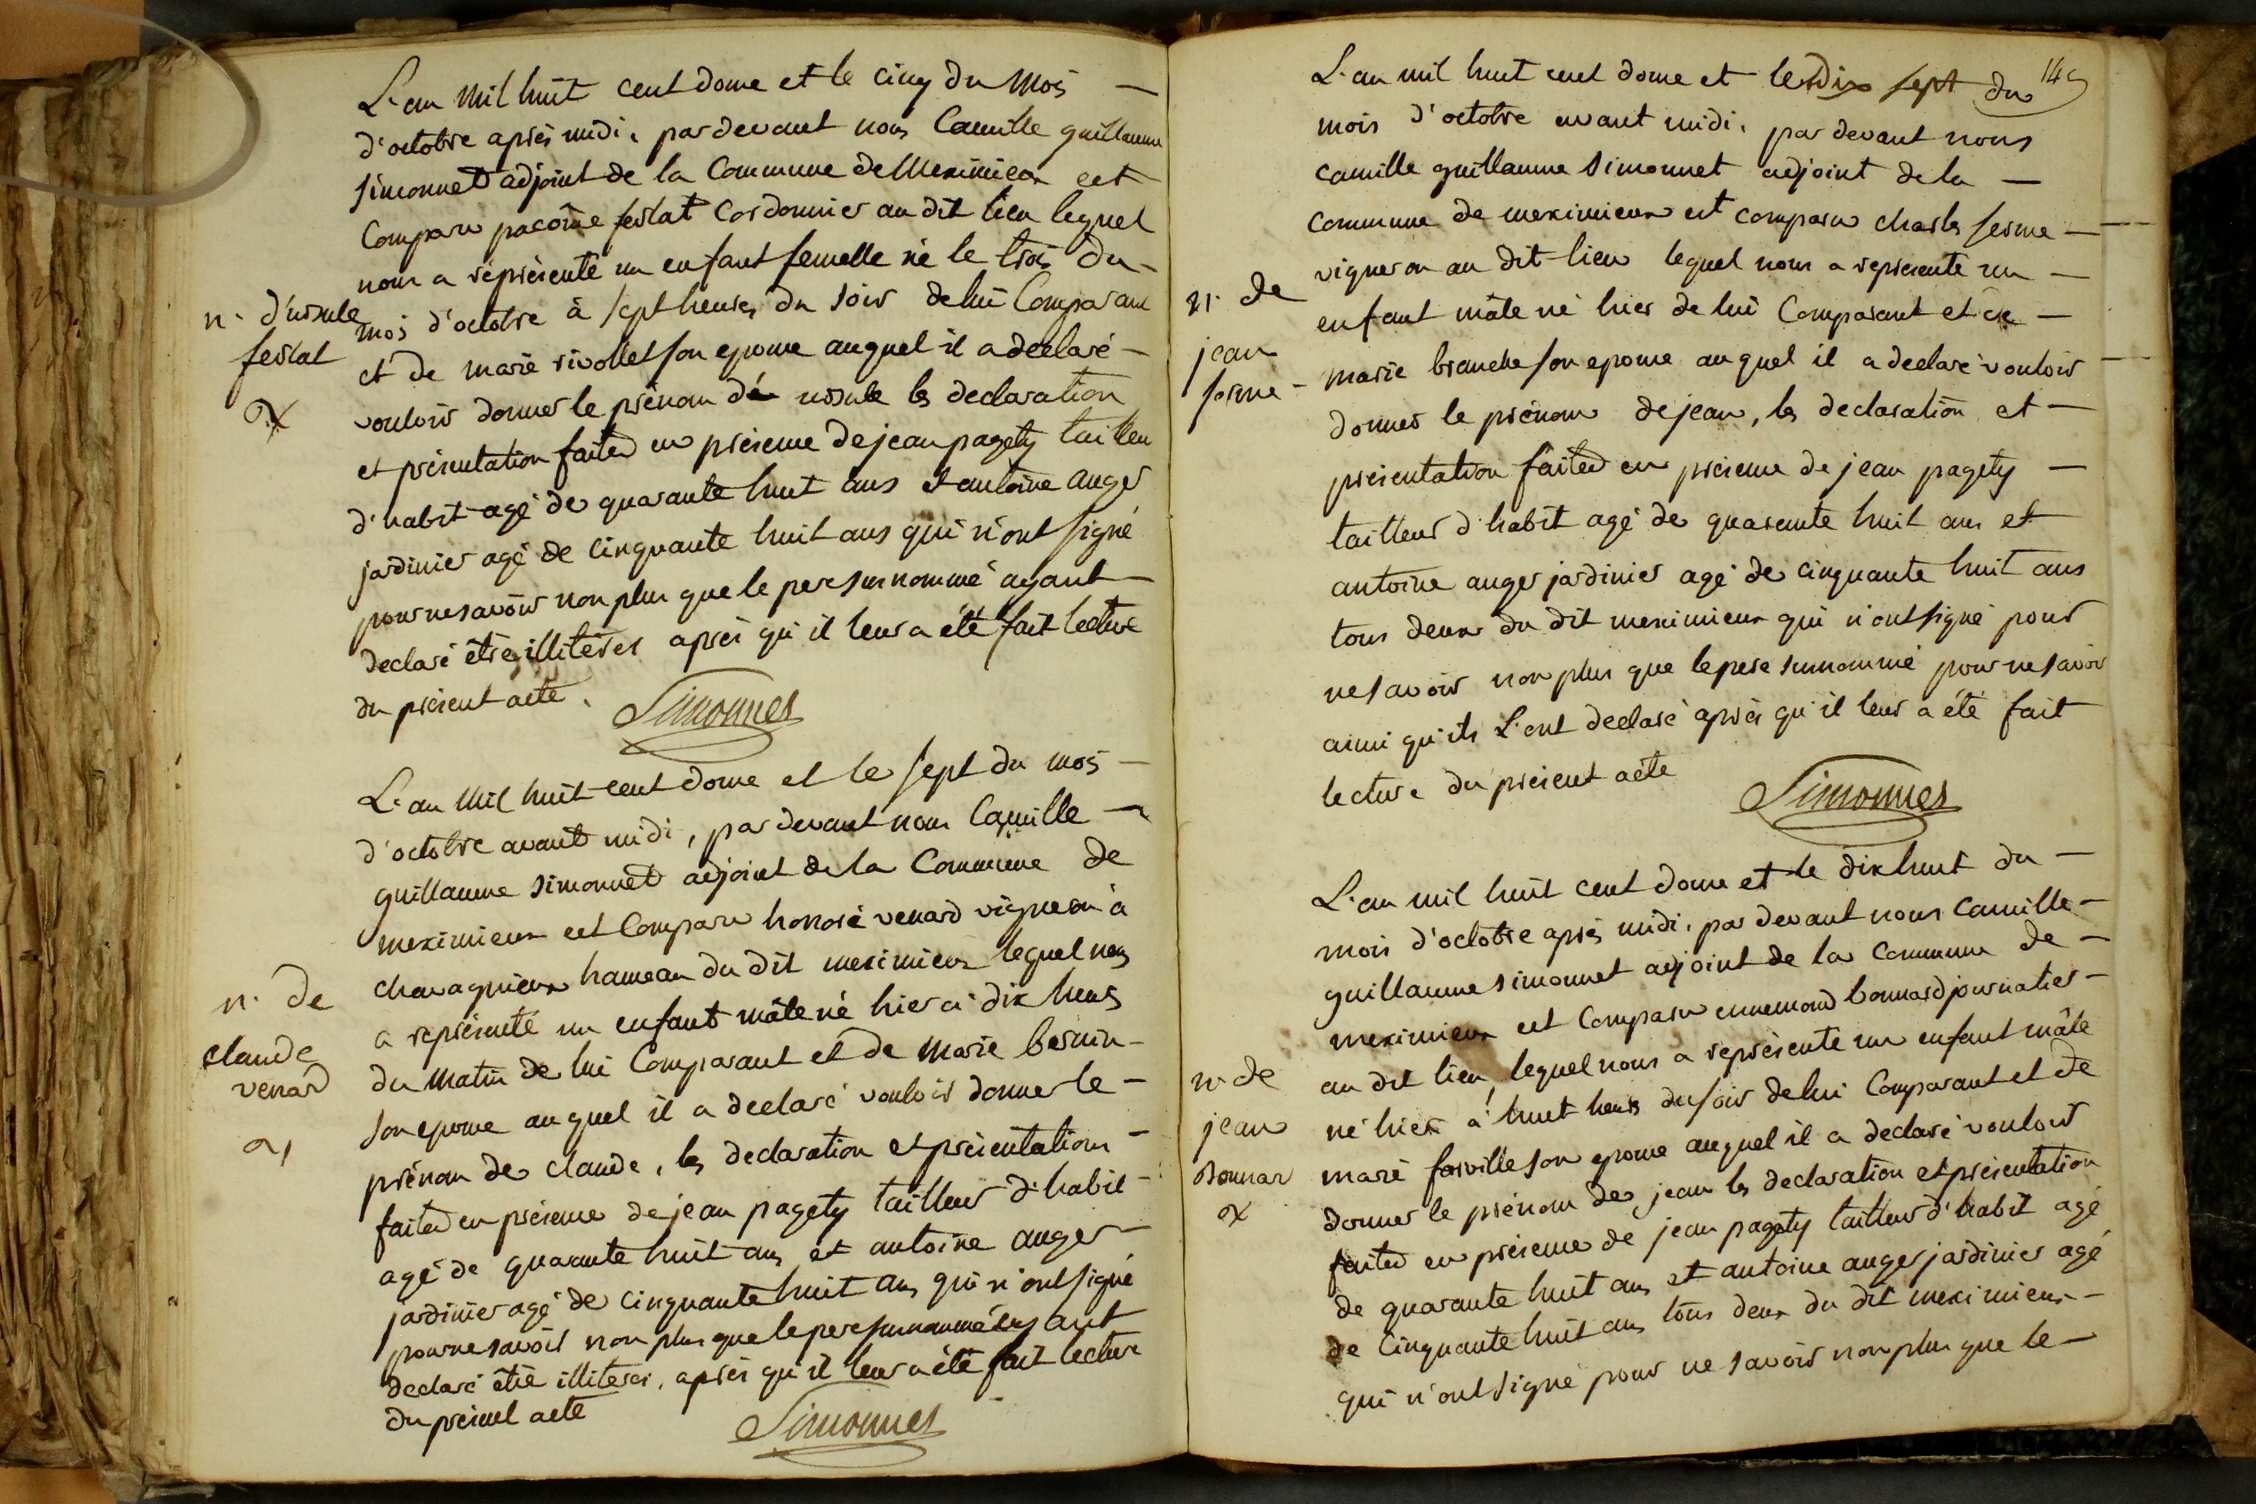 L'an mil huit cent douze et le cinq du mois
d'octobre après midi, par devant nous Camille guillaume
simonnet adjoint de la Commune de Meximieux est
Comparu pacôme ferlat Cordonnier au dit lieu lequel
nous a réprésenté un enfant femelle né le trois du
n. d'ursule
ferlat
mois d'octobre à sept heures du soir de lui Comparant
et de marie rivollet son epouse auquel il a declaré
vouloir donner le prénom d' ursule les declaration
et présentation faites en présence de jean pagety tailleur
d'habit agé de quarante huit ans et antoine auger
jardinier agé de cinquante huit ans qui n'ont signé
pour ne savoir non plus que le pere surnommé ayant
declaré être illitères après qu'il leur a été fait lecture
du présent acte.
Simonnet
L'an mil huit cent douze et le sept du mois
d'octobre avant midi, par devant nous Camille
guillaume simonnet adjoint de la Commune de
meximieux est Comparu honoré venard vigneron à
chavagnieux hameau du dit meximieux lequel nous
n. de
claude
venard
a réprésenté un enfant mâle né hier à dix heures
du matin de lui Comparant et de marie bernin
son epouse auquel il a declaré vouloir donner le
prénom de claude, les declaration et présentations
faites en présence de jean pagety tailleur d'habit
agé de quarante huit ans et antoine auger
jardinier agé de cinquante huit ans qui n'ont signé
pour ne savoir non plus que le pere surnommé ayant
declaré être illitères, après qu'il leur a été fait lecture
du présent acte
Simonnet
L'an mil huit cent douze et le dix sept du
mois d'octobre avant midi, par devant nous
camille guillaume simonnet adjoint de la
commune de meximieux est comparu charles ferme
vigneron au dit lieu lequel nous a représenté un
n. de
jean
ferme
enfant mâle né hier de lui Comparant et de
marie branche son epouse auquel il a declaré vouloir
donner le prénom de jean, les declaration et
présentation faites en présence de jean pagety
tailleur d'habit agé de quarante huit ans et
antoine auger jardinier agé de cinquante huit ans
tous deux du dit meximieux qui n'ont signé pour
ne savoir non plus que le pere surnommé pour ne savoir
ainsi qu'ils L'ont declaré après qu'il leur a été fait
lecture du présent acte
Simonnet
L'an mil huit cent douze et le dix huit du
mois d'octobre après midi, par devant nous Camille
guillaume simonnet adjoint de la Commune de
meximieux est Comparu ennemond bonnard journalier
au dit lieu, lequel nous a représenté un enfant mâle
n. de
jean
Bonnar
né hier à huit heures du soir de lui Comparant et de
marie forville son epouse auquel il a declaré vouloir
donner le prénom de jean les declaration et présentation
faites en présence de jean pagety tailleur d'habit agé
de quarante huit ans et antoine auger jardinier agé
de cinquante huit ans tous deux du dit meximieux
qui n'ont signé pour ne savoir non plus que le